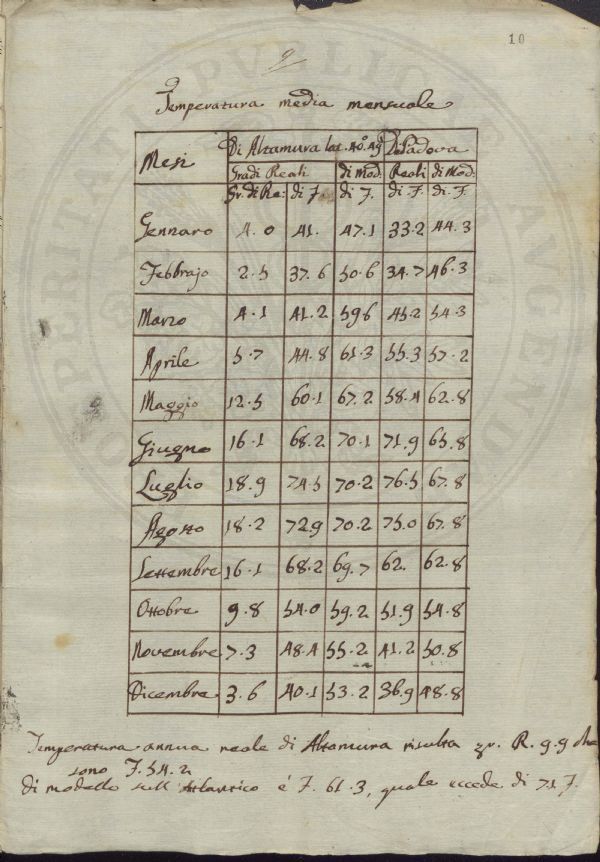 10
9
Temperatura media mensuale
Mesi Di Altamura lat. 40°.49' Di Padova
Gradi Reali di Mod: Reali di Mod:
Gr. di Re: di F. di F. di F. di F.
Gennaro 4.0 41. 47.1 33.2 44.3
Febbrajo 2.5 37.6 50.6 34.7 46.3
Marzo 4.1 41.2 596 45.2 54.3
Aprile 5.7 44.8 61.3 55.3 57.2
Maggio 12.5 60.1 67.2 58.4 62.8
Giugno 16.1 68.2 70.1 71.9 65.8
Luglio 18.9 74.5 70.2 76.5 67.8
Agosto 18.2 72.9 70.2 75.0 67.8
Settembre 16.1 68.2 69.7 62. 62.8
Ottobre 9.8 54.0 59.2 51.9 54.8
Novembre 7.3 48.4 55.2 41.2 50.8
Dicembre 3.6 40.1 53.2 36.9 48.8
Temperatura annua reale di Altamura risulta gr. R. 9.9 che
sono F. 54.2
di modello sull'Atlantico é F. 61.3, quale eccede di 7.1 F.